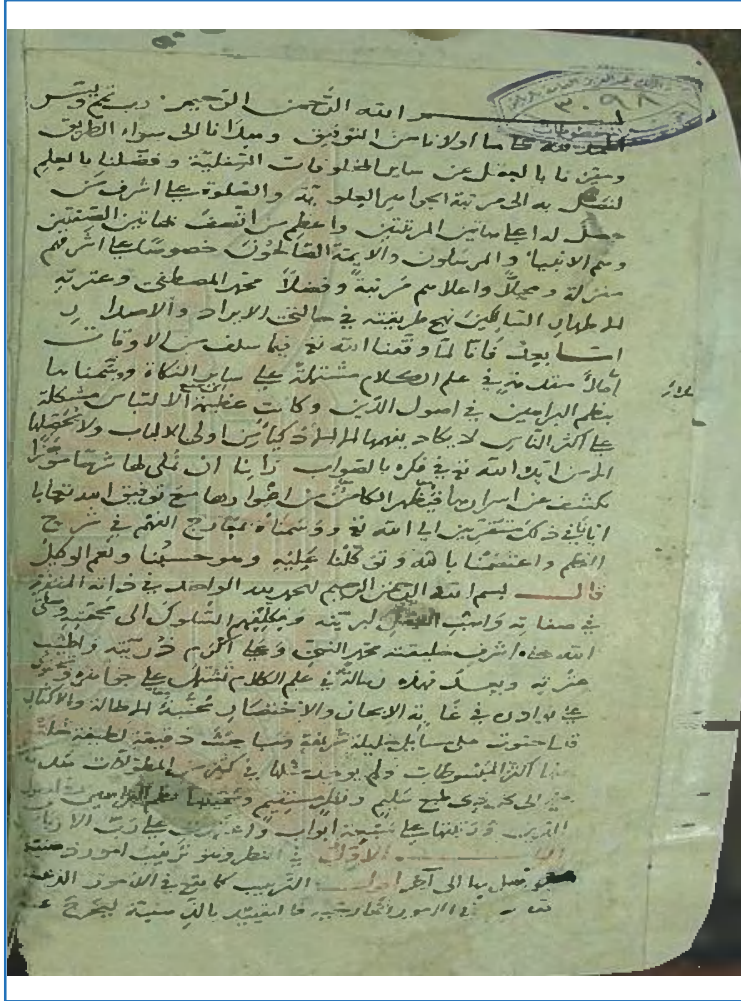 بسم الله الرحمن الرحيم رب تمم ويسر
٣٠٩٨
الحمد لله على ما اولانا من التوفيق وهدانا الى سواء الطريق
وميزنا بالعقل عن ساير المخلوقات السفلية وفضلنا بالعلم
لنصل به الى مرتبة الجواهر العلوية والصلوة على اشرف من
حصل له اعلى هاتين المرتبتين واعظم من اتصف بهاتين الصفتين
وهم الانبياء والمرسلون والايمة الصالحون خصوصا على اشرفهم
منزلة ومحلا واعلاهم مرتبة وفضلا محمد المصطفى وعترته
الاطهار السالكين نهج طريقته في حالتي الايراد والاصدار
اما بعد فانا لما وفقنا الله تع فيما سلف من الاوقات
املاء
لاملاء مقدمة في علم الكلام مشتملة على ساير النكات ووسمناها
بنظم البراهين في اصول الدين وكانت عظيمة الالتباس مشكلة
على اكثر الناس لا يكاد يفهمها الا الافذاذ من اولى الالباب ولا يحصلها
الا من ايده الله تع في فكره بالصواب راينا ان نملى لها شرحا موجزا
يكشف عن اسرارها ويظهر الكامن من اغوارها مع توفيق الله تع ايانا
في ذلك متقربين الى الله تع ووسمناه بمعارج الفهم في شرح
النظم واعتصمنا بالله وتوكلنا عليه وهو حسبنا ونعم الوكيل
قال بسم الله الرحمن الرحيم الحمد لله الواحد في ذاته المتفرد
في صفاته واهب العقل لبريته ومكلفهم السلوك الى محجته وصلى
الله على اشرف خليقته محمد النبي وعلى اكرم ذريته واطيب
عترته وبعد فهذه رسالة في علم الكلام تشتمل على جواهره وتحتوى
على نوادره في غاية الايجاز والاختصار مجتنبة الاطالة والاكثار
قد احتوت على مسايل جليلة شريفة ومباحث دقيقة لطيفة خلت
عنها اكثر المبسوطات ولم يوجد مثلها في كثير من المطولات
الى كل ذى طبع سليم وفكر مستقيم وسميتها نظم البراهين في اصول
الدين ورتبتها على سبعة ابواب واعتمدت على رب الارباب
الباب الاول في النظر وهو ترتيب امور ذهنية
يتوصل بها الى آخر اقول الترتيب كما يقع في الامور الذهنية
يقع في الامور الخارجية فالتقييد بالذهنية ليخرج عنه